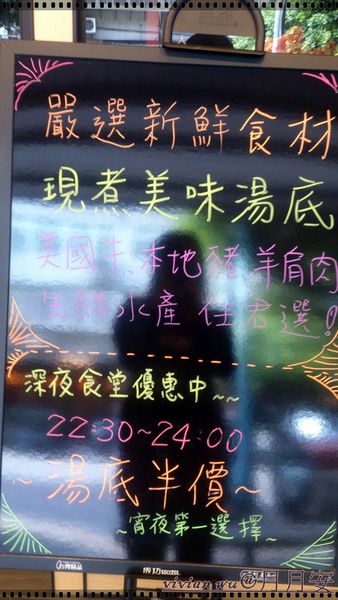 嚴選新鮮食材
現煮美味湯底
美國牛、本地豬、羊肩肉
生鮮水產 任君選!
深夜食堂優惠中~~
22:30~24:00
~湯底半價~
~宵夜第一選擇~
成功 success
vivian wu@月月安